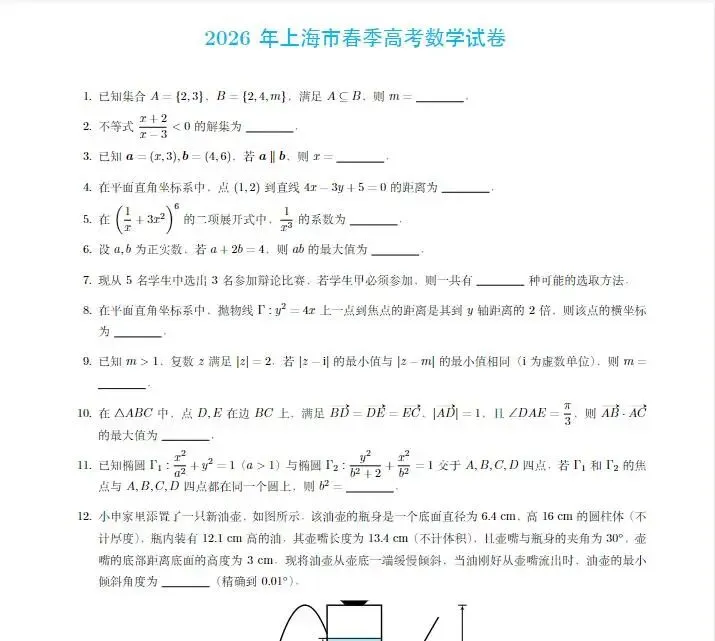 2026 年上海市春季高考数学试卷
1. 已知集合 A = {2,3}, B = {2,4,m}, 满足 A ⊆ B, 则 m = ______.
2. 不等式 \frac{x+2}{x-3} < 0 的解集为 ______.
3. 已知 a = (x,3), b = (4,6), 若 a ∥ b, 则 x = ______.
4. 在平面直角坐标系中, 点 (1,2) 到直线 4x − 3y + 5 = 0 的距离为 ______.
5. 在 (\frac{1}{x} + 3x²)⁶ 的二项展开式中, \frac{1}{x³} 的系数为 ______.
6. 设 a,b 为正实数, 若 a + 2b = 4, 则 ab 的最大值为 ______.
7. 现从 5 名学生中选出 3 名参加辩论比赛, 若学生甲必须参加, 则一共有 ______ 种可能的选取方法.
8. 在平面直角坐标系中, 抛物线 Γ : y² = 4x 上一点到焦点的距离是其到 y 轴距离的 2 倍, 则该点的横坐标
为 ______.
9. 已知 m > 1, 复数 z 满足 |z| = 2, 若 |z − i| 的最小值与 |z − m| 的最小值相同 (i 为虚数单位), 则 m =
______.
10. 在 △ABC 中, 点 D,E 在边 BC 上, 满足 \overrightarrow{BD} = \overrightarrow{DE} = \overrightarrow{EC}, |\overrightarrow{AD}| = 1, 且 ∠DAE = \frac{π}{3}, 则 \overrightarrow{AB} · \overrightarrow{AC}
的最大值为 ______.
11. 已知椭圆 Γ₁ : \frac{x²}{a²} + y² = 1 (a > 1) 与椭圆 Γ₂ : \frac{y²}{b²+2} + \frac{x²}{b²} = 1 交于 A,B,C,D 四点, 若 Γ₁ 和 Γ₂ 的焦
点与 A,B,C,D 四点都在同一个圆上, 则 b² = ______.
12. 小申家里添置了一只新油壶, 如图所示. 该油壶的瓶身是一个底面直径为 6.4 cm, 高 16 cm 的圆柱体 (不
计厚度), 瓶内装有 12.1 cm 高的油, 其壶嘴长度为 13.4 cm (不计体积), 且壶嘴与瓶身的夹角为 30°, 壶
嘴的底部距离底面的高度为 3 cm. 现将油壶从壶底一端缓慢倾斜, 当油刚好从壶嘴流出时, 油壶的最小
倾斜角度为 ______ (精确到 0.01°).